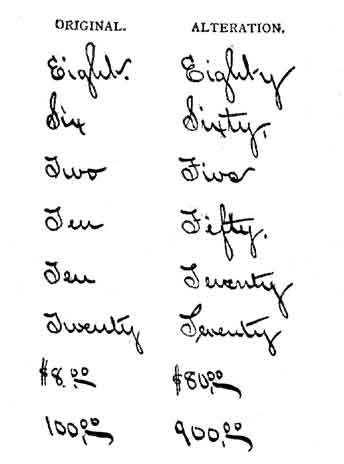 ORIGINAL. ALTERATION.
Eight. Eighty
Six Sixty,
Two Five
Ten Fifty.
Ten Seventy
Twenty Seventy
$8.00 $80.00
100,00 900,00